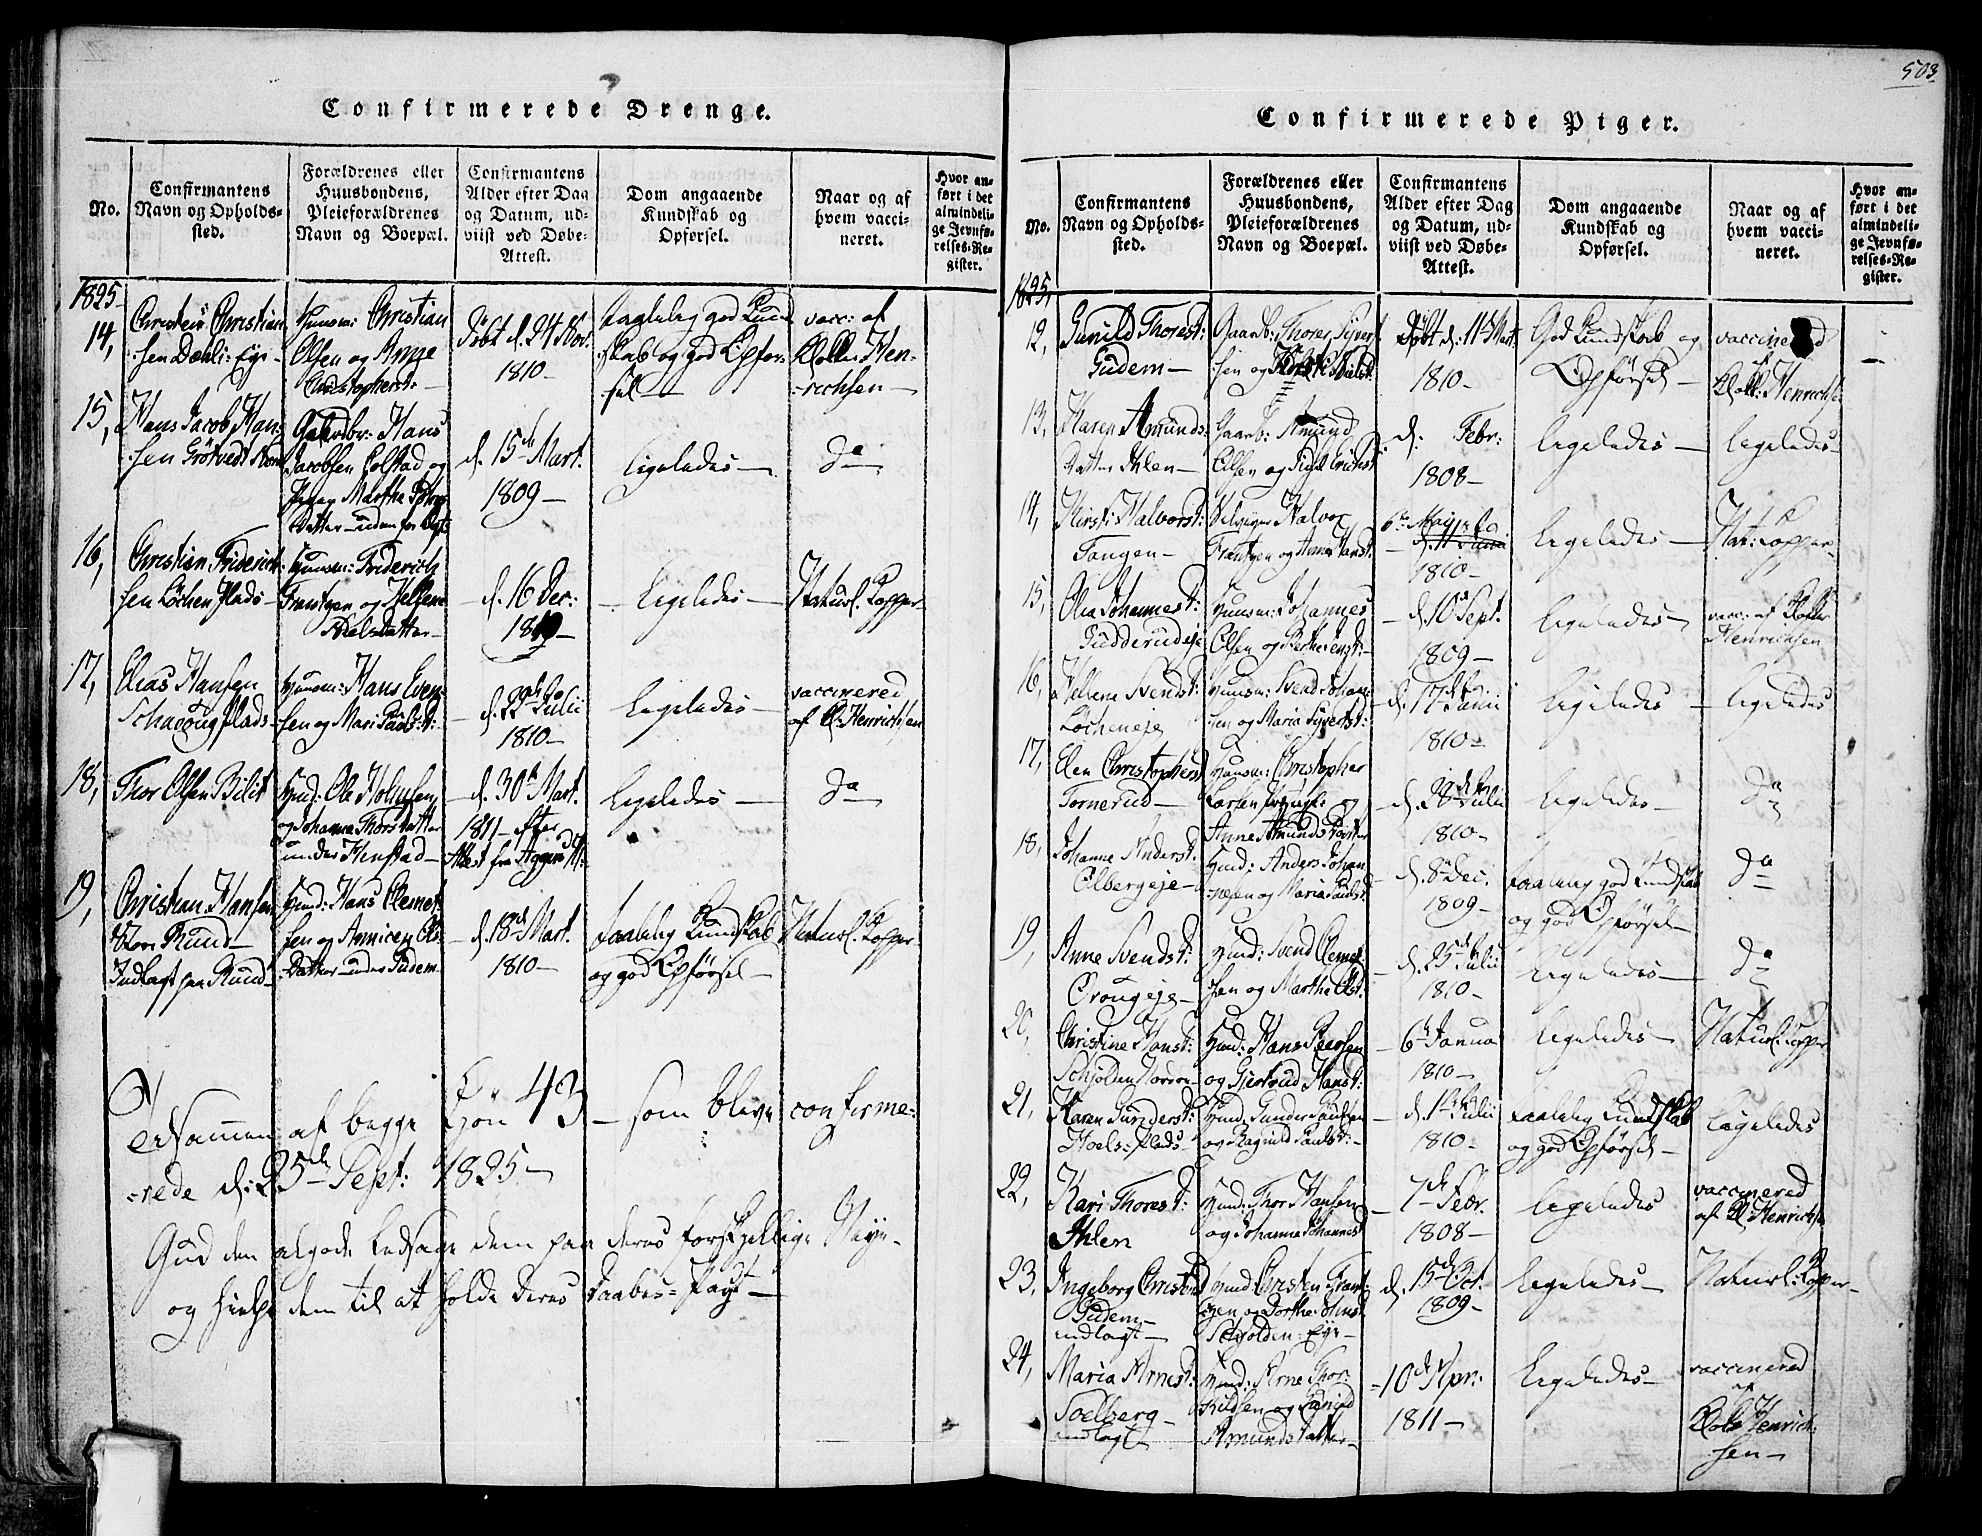 503
Confirmerede Drenge.
No.
Confirmantens
Navn og Opholds-
sted.
Forældrenes eller
Huusbondens,
Pleieforældrenes
Navn og Boepæl.
Confirmantens
Alder efter Dag
og Datum, ud-
viist ved Døbe-
Attest.
Dom angaaende
Kundskab og
Opførsel.
Naar og af
hvem vacci-
neret.
Hvor an-
ført i det
almindeli-
ge Jevnfø-
relses-Re-
gister.
1825
14,
Christen Christian
sen Dæhli: Eje
Huusm: Christian
Olsen og Anne
Christophersd:
Døbt d. 24 Nov.
1810
taalelig god Kund
skab og god Opfør
sel
vacc: af
Kolb. Hen-
richsen
15,
Hans Jacob Han
sen Grøtvedt
Gaardbr: Hans
Jacobsen Colstad og
Pige Marthe Peders
datter
d. 15de Mart.
1809
Ligeledes
Do
16,
Christian Friderich
sen Løchen Plads
Huusm: Friderich
Frantzen og Hellene
Nielsdatter
d. 16 Dec:
Ligeledes
Naturl. Kopper
17,
Elias Hansen
Schnoug plads
Huusm: Hans Even
sen og Mari Pauls d:
d. 22de Julii
1810
Ligeledes
vaccinered
af Kl: Henrichsen
18,
Thor Olsen Bilit
Huusd: Ole
og Johanne Thorsdatter
under Henstad
d. 30te Mart.
1811 efter
Attest fra
Ligeledes
Do
19,
Christian Hansen
Store Ruud
Indlagt paa Ruud
Huusd: Hans Clemet
sen og Annichen Ols
Datter under Gudem
d. 18de Mart.
1810
taalelig Kundskab
og god Opførsel
Naturl. Kopper
Tilsammen af begge Kjøn 43 som bleve confirme-
rede d: 25de Sept: 1825
Gud den algode ledsage dem paa deres forskjellige Veije
og hielpe dem til at holde deres Daabes-Pagt
Confirmerede Piger.
No.
Confirmantens
Navn og Opholds-
sted.
Forældrenes eller
Huusbondens,
Pleieforældrenes
Navn og Boepæl.
Confirmantens
Alder efter Dag
og Datum, ud-
viist ved Døbe-
Attest.
Dom angaaende
Kundskab og
Opførsel.
Naar og af
hvem vacci-
neret.
Hvor an-
ført i det
almindeli-
ge Jevnfø-
relses-Re-
gister.
1825,
12,
Gunild Thoresd:
Gudem
Gaarb: Thores Siver
sen og
Døbt d: 11te Mart.
1810
God Kundskab og
Opførsel
vaccinered
af
Kolb: Henrichsen
13,
Karen Amunds
datter Ihlen
Gaarb: Amund
Olsen og Sigri Erichsd
d: Febr:
1808
Ligeledes
Ligeledes
14,
Kirsti Halvorsd:
Tangen
Selveier Halvor
Frantzen og Anne Hansd:
6te Maij
d. 11 Juni
1810
Ligeledes
Nat: Kopper
15,
Olia Johannesd:
Gudderudeje
Huusm: Johannes
Olsen og Berthe Jensd:
d. 10de Sept.
1809
Ligeledes
vacc: af Kolb
Henrichsen
16,
Hellene Svends d:
Løcheneje
Huusm: Svend Johan
sen og Maria Siversd:
d. 17de Junii
1810
Ligeledes
Ligeledes
17,
Elen Christophersd
Tornerud
Huusm: Christopher
Larsen og
Anne Amundsdatter
d. 28de Julii
1810
Ligeledes
Do
18,
Johanne Andersd.
Olbergeje
Huusd: Anders Johan
nesen og Maria Paulsd:
d. 8de Dec.
1809
taalelig god Kundskab
og god Opførsel
Do
19,
Anne Svendsd:
Orougeje
Huusd: Svend Clemet
sen og Marthe Olsd:
d. 25de Julii
1810
Ligeledes
Do
20,
Christine Hansd:
Schjolden Nordre
Huusd: Hans Peersen
og Gjertrud Hansd:
6te Janua
1810
Ligeledes
Naturl: Kopper
21,
Karen Gundersd:
Hoels: plads
Huusd. Gunder Paulsen
og Ragnild Paulsd:
d. 1te Julii
1810
taalelig Kundskab
og god Opførsel
Ligeledes
22,
Kari Thoresd:
Ihlen
Huusd: Thor Hansen
og Johanne Johannesd
7de Febr.
1808
Ligeledes
vaccinered
af Kl: Henrichsen
23,
Ingeborg Christensd
Gudem
indlagt
Huusd: Christen Frant
zen og Dorthe Johnsd
Schjolden: Eje
d. 15de Oct.
1809
Ligeledes
Naturl: Kopper
24,
Maria Arnesd:
Soelberg
indlagt
Huusd: Arne Thor
kildsen og
Amundsdatter
10de Apr:
1811
Ligeledes
vaccinered
af
Kolb Henrich
sen